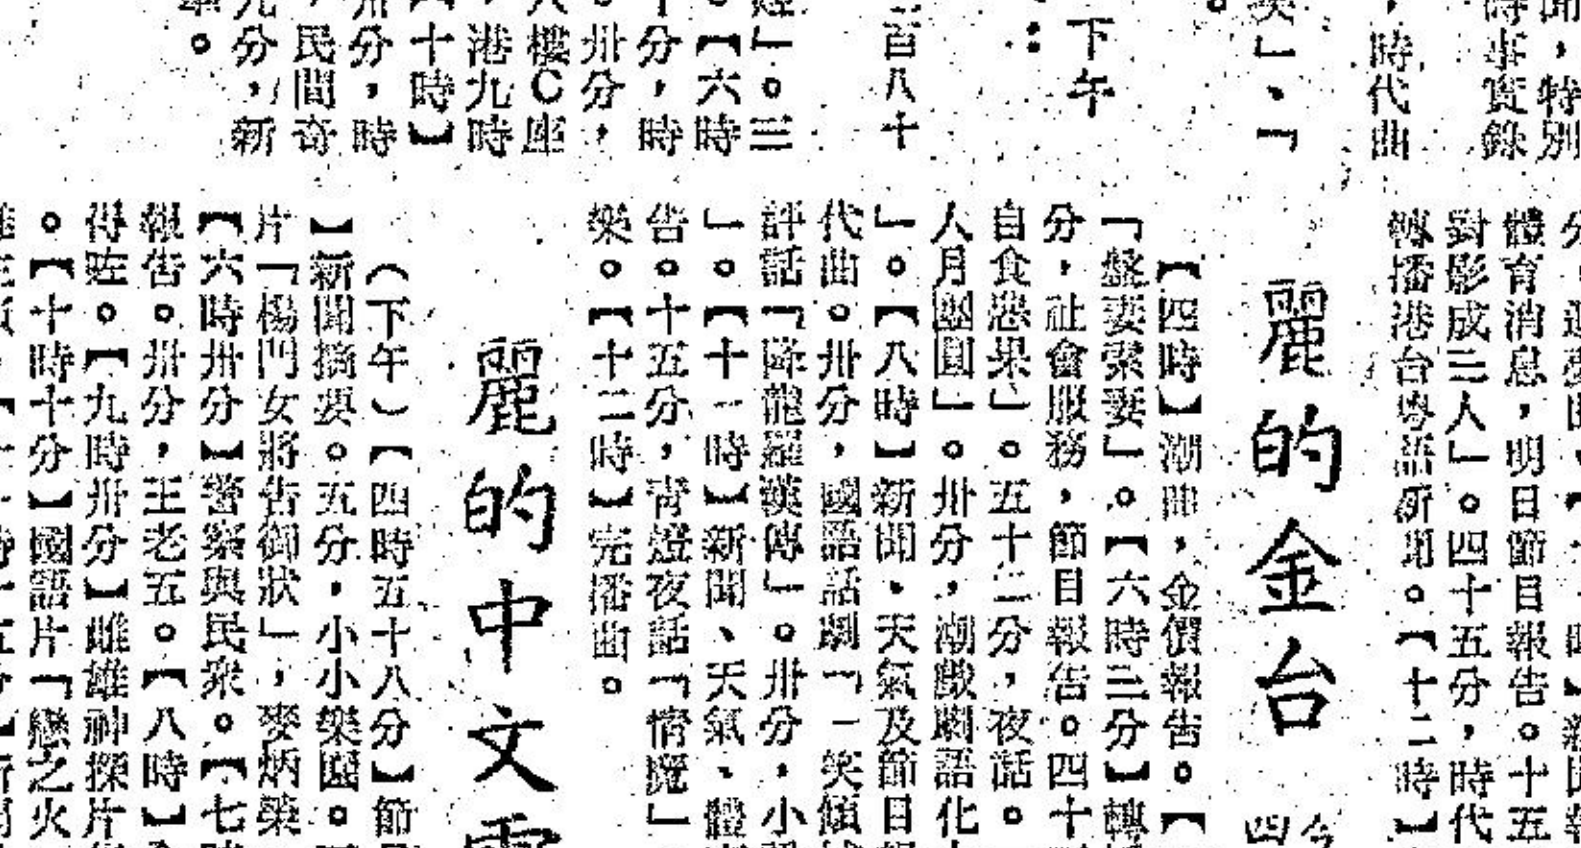 聞，特別
時事實錄
，時代曲
」、「
下午
：
百八十
」。三
【六時
十分，時
。卅分，
八樓C座
，港九時
四十時】
卅分，時
，民間奇
九分，新
。
體育消息，明日節目報告。十五
對影成三人」。四十五分，時代
轉播港台粵語新聞。【十二時】
麗的金台
【四時】潮曲，金價報告。【
「盤妻索妻」。【六時三分】轉
分，社會服務，節目報告。四十
自食惡果」。五十二分，夜話。
人月團圓」。卅分，潮戲劇語化
」。【八時】新聞、天氣及節目
代曲。卅分，國語話劇「一笑傾
評話「降龍羅漢傳」。卅分，小
」。【十一時】新聞、天氣、體
告。十五分，青燈夜話「情魔」
樂。【十二時】完播曲。
麗的中文電
（下午）【四時五十八分】節
】新聞摘要。五分，小小樂園。
片「楊門女將告御狀」，麥炳榮
【六時卅分】警察與民衆。【七
報告。卅分，王老五。【八時】
得咗。【九時卅分】雌雄神探片
。【十時十分】國語片「戀之火